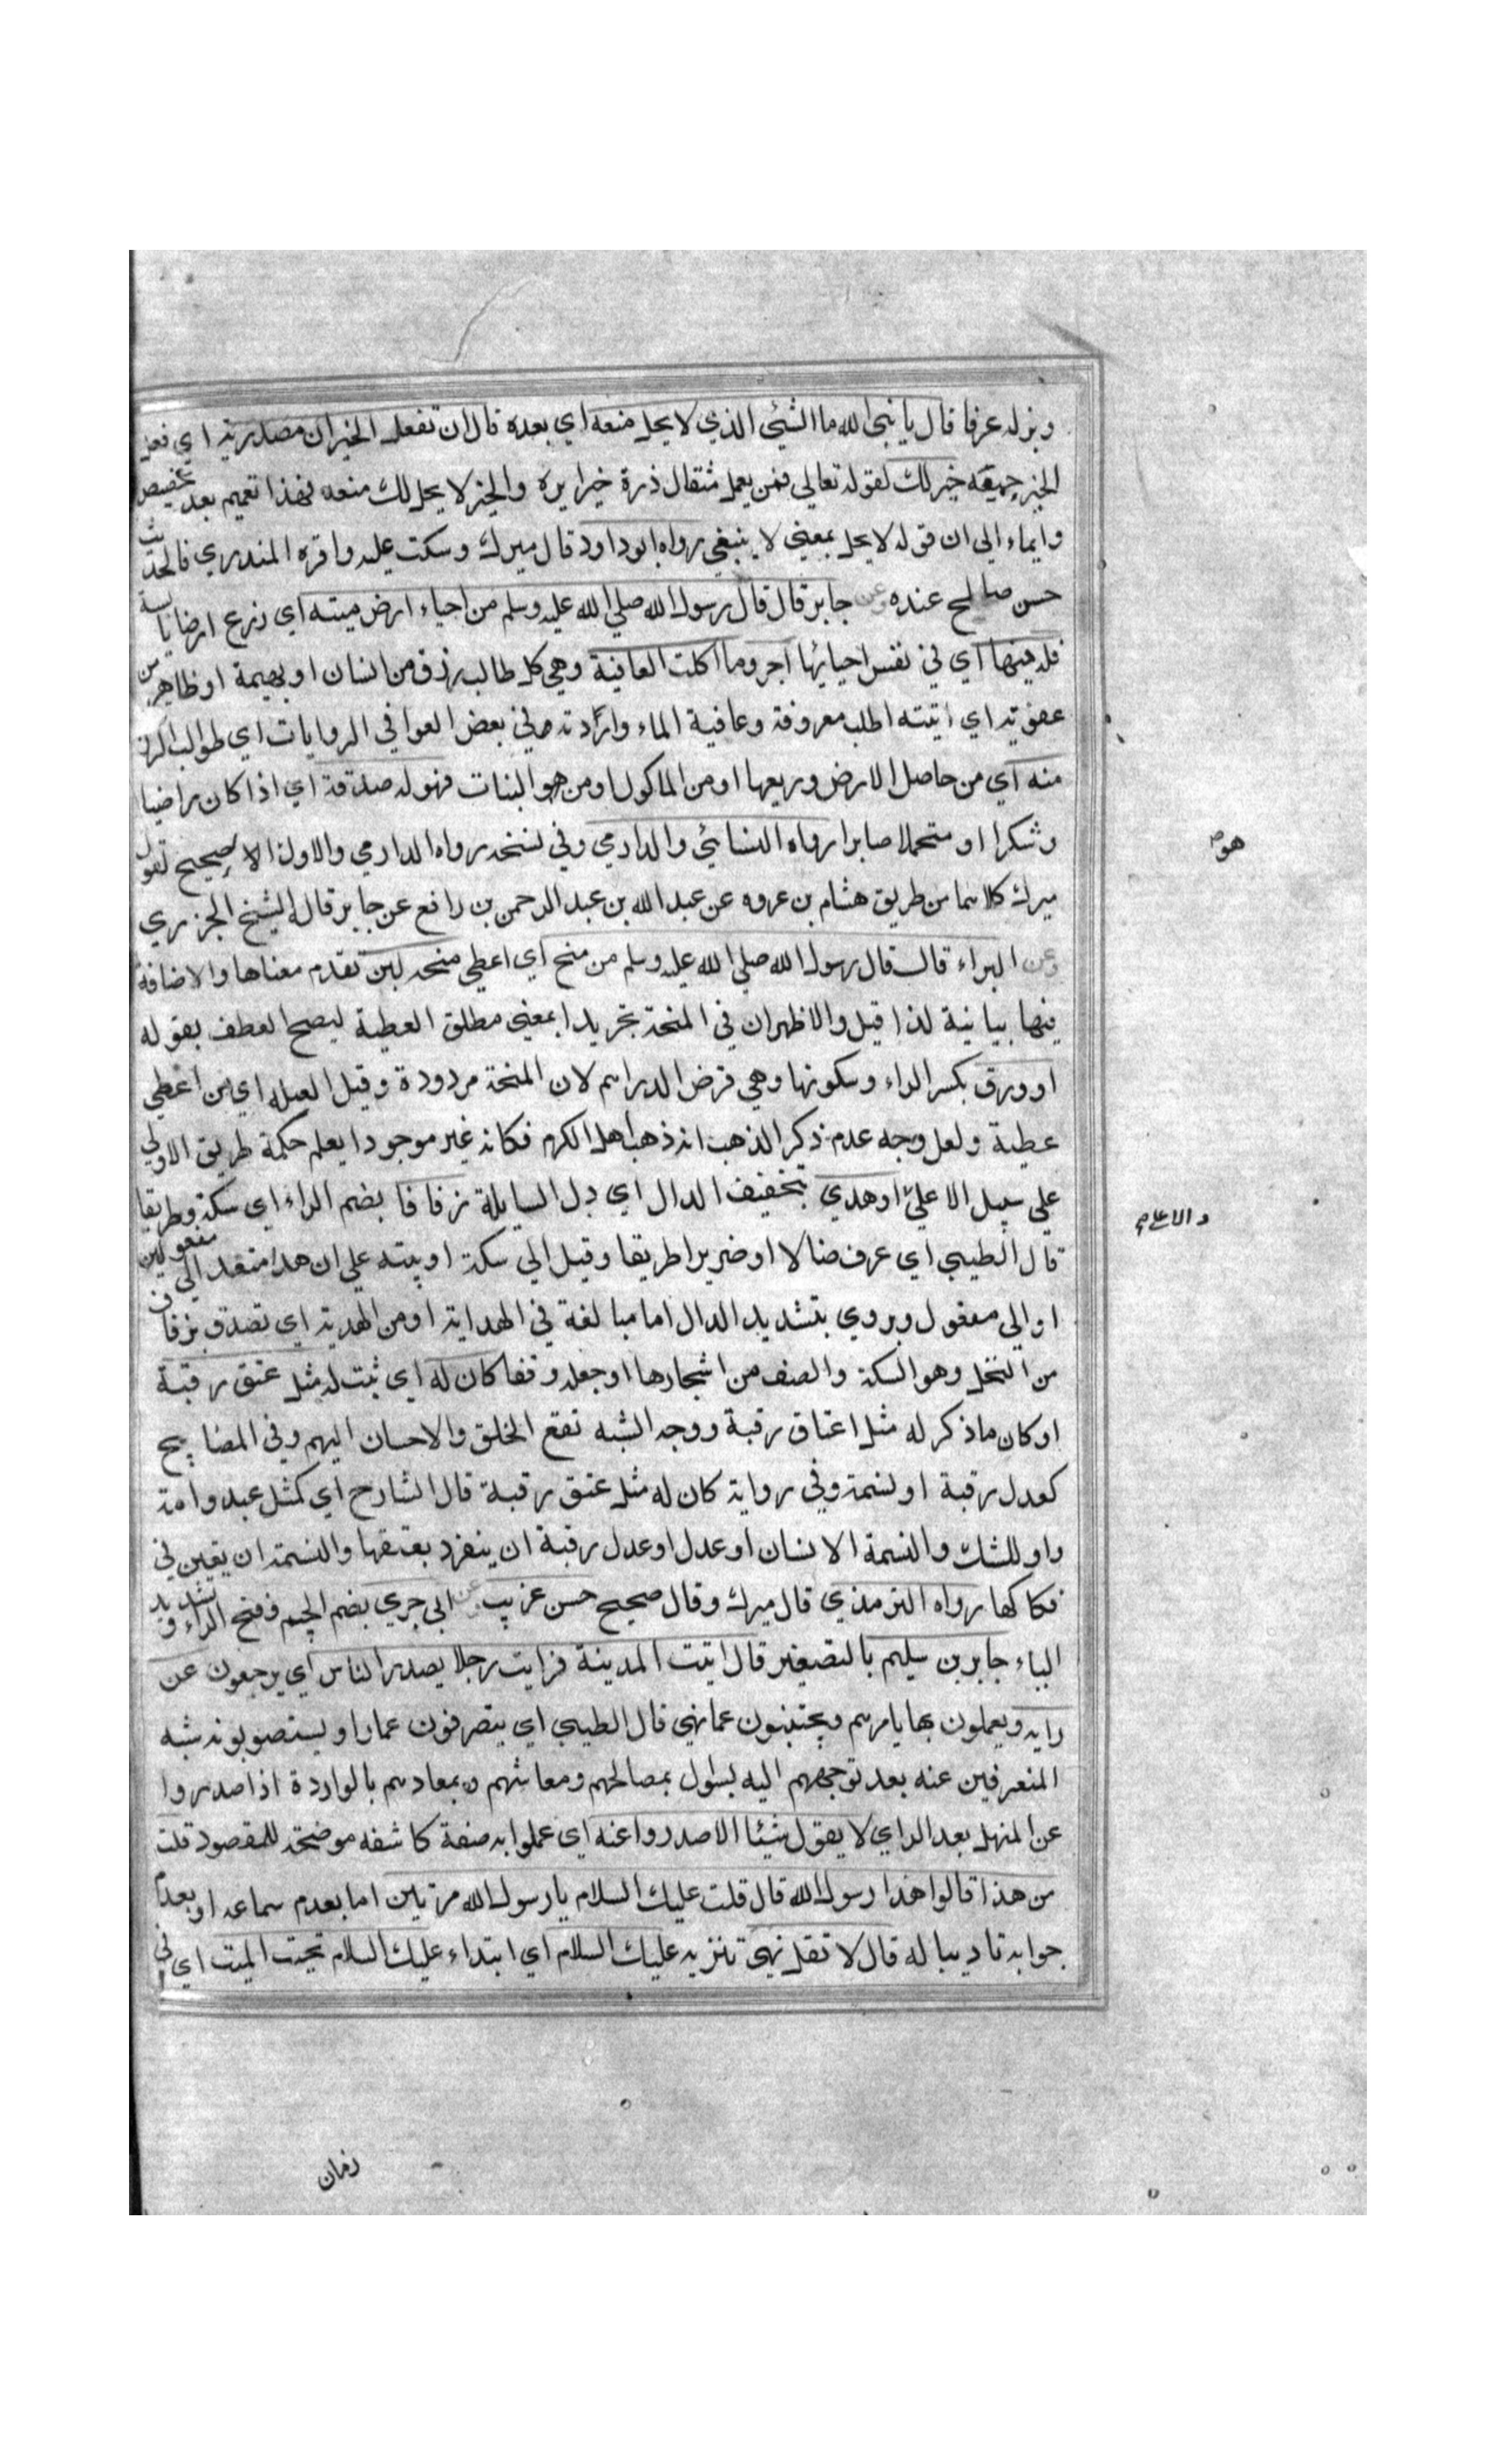 وبزله عرفا قال يا نبي الله ما الشيئ الذي لا يحل منعه اي بعده قال ان تفعل الخير ان مصدرية اي فعل
الخير جميعه خير لك لقوله تعالي فمن يعمل مثقال ذرة خيرا يره والخير لا يحل لك منعه فهذا تعميم بعد تخصيص
وايماء الي ان قوله لا يحل بمعني لا ينبغي رواه ابو داود قال ميرك وسكت عليه واقره المنذري فالحديث
حسن صالح عنده وعن جابر قال قال رسول الله صلي الله عليه وسلم من احياء ارض ميته اي زرع ارضا يابسة
فله فيها اي في نفس احيائها اجر وما اكلت العافية وهي كل طالب رزق من انسان او بهيمة او طاير من
عفوته اي اتيته اطلب معروفة وعافية الماء واردته وفي بعض العوافي الروايات اي طوالب الرزق
منه اي من حاصل الارض وريعها او من الماكول او من هو النبات فهو له صدقة اي اذا كان راضيا
وشكرا او متحملا صابرا رواه النسائي والدارمي وفي نسخه رواه الدارمي والاول الا صحيح لقول
ميرك كلاهما من طريق هشام بن عروه عن عبد الله بن عبد الرحمن بن رافع عن جابر قاله الشيخ الجزري
وعن البراء قال قال رسول الله صلي الله عليه وسلم من منح اي اعطي منحه لبن تقدم معناها والاضافة
فيها بيانية لذا قيل والاظهر ان في المنحة تجريدا بمعني مطلق العطية ليصح العطف بقوله
او ورق بكسر الراء وسكونها وهي قرض الدراهم لان المنحة مردودة وقيل الصله اي من اعطي
عطية ولعل وجه عدم ذكر الذهب انه ذهب اهل الكرم فكانه غير موجود ا يعلم حكمة طريق الاولي
علي سبيل الا علي او هدي بتخفيف الدال اي دل السايلة زقاقا بضم الزاء اي سكة وطريقا
قال الطيبي اي عرف ضالا او ضريرا طريقا وقيل الي سكة او بيته علي ان هدا متعد الي مفعولين
او الي مفعول ويروي بتشديد الدال اما مبالغة في الهداية او من الهدية اي تصدق بزقاق
من النخل وهو السكة والصف من اشجارها او جعله وقفا كان له اي ثبت له مثل عتق رقبة
او كان ما ذكر له مثل اعتاق رقبة ووجه الشبه نفع الخلق والاحسان اليهم وفي المصابيح
كعدل رقبة او نسمة وفي رواية كان له مثل عتق رقبة قال الشارح اي كمثل عبد وامة
واو للشك والنسمة الانسان او عدل او عدل رقبة ان ينفرد بعتقها والنسمة ان يعين في
فكاكها رواه الترمذي قال ميرك وقال صحيح حسن غريب عن ابي جري بضم الجيم وفتح الراء وتشديد
الياء جابر بن سليم بالتصغير قال اتيت المدينة فرايت رجلا يصدر الناس اي يرجعون عن
رايه ويعملون بما يامرهم ويجتنبون عما نهي قال الطيبي اي يتصرفون عما راو يستصوبونه شبه
المنصرفين عنه بعد توجههم اليه لسول بمصالحهم ومعاشهم وبمعادهم بالواردة اذا صدروا
عن المنهل بعد الراي لا يقول شيئا الا صدروا عنه اي عملوا به صفة كاشفه موضحة للمقصود قلت
من هذا قالوا هذا رسول الله قال قلت عليك السلام يا رسول الله مرتين اما بعدم سماعه او بعدم
جوابه تاديبا له قال لا تقل نهي تنزيه عليك السلام اي ابتداء عليك السلام تحية الميت اي في
هو
زمان